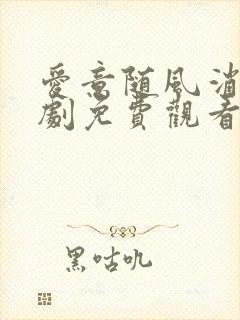 愛意随風消
劇免費觀看
黑咕叽